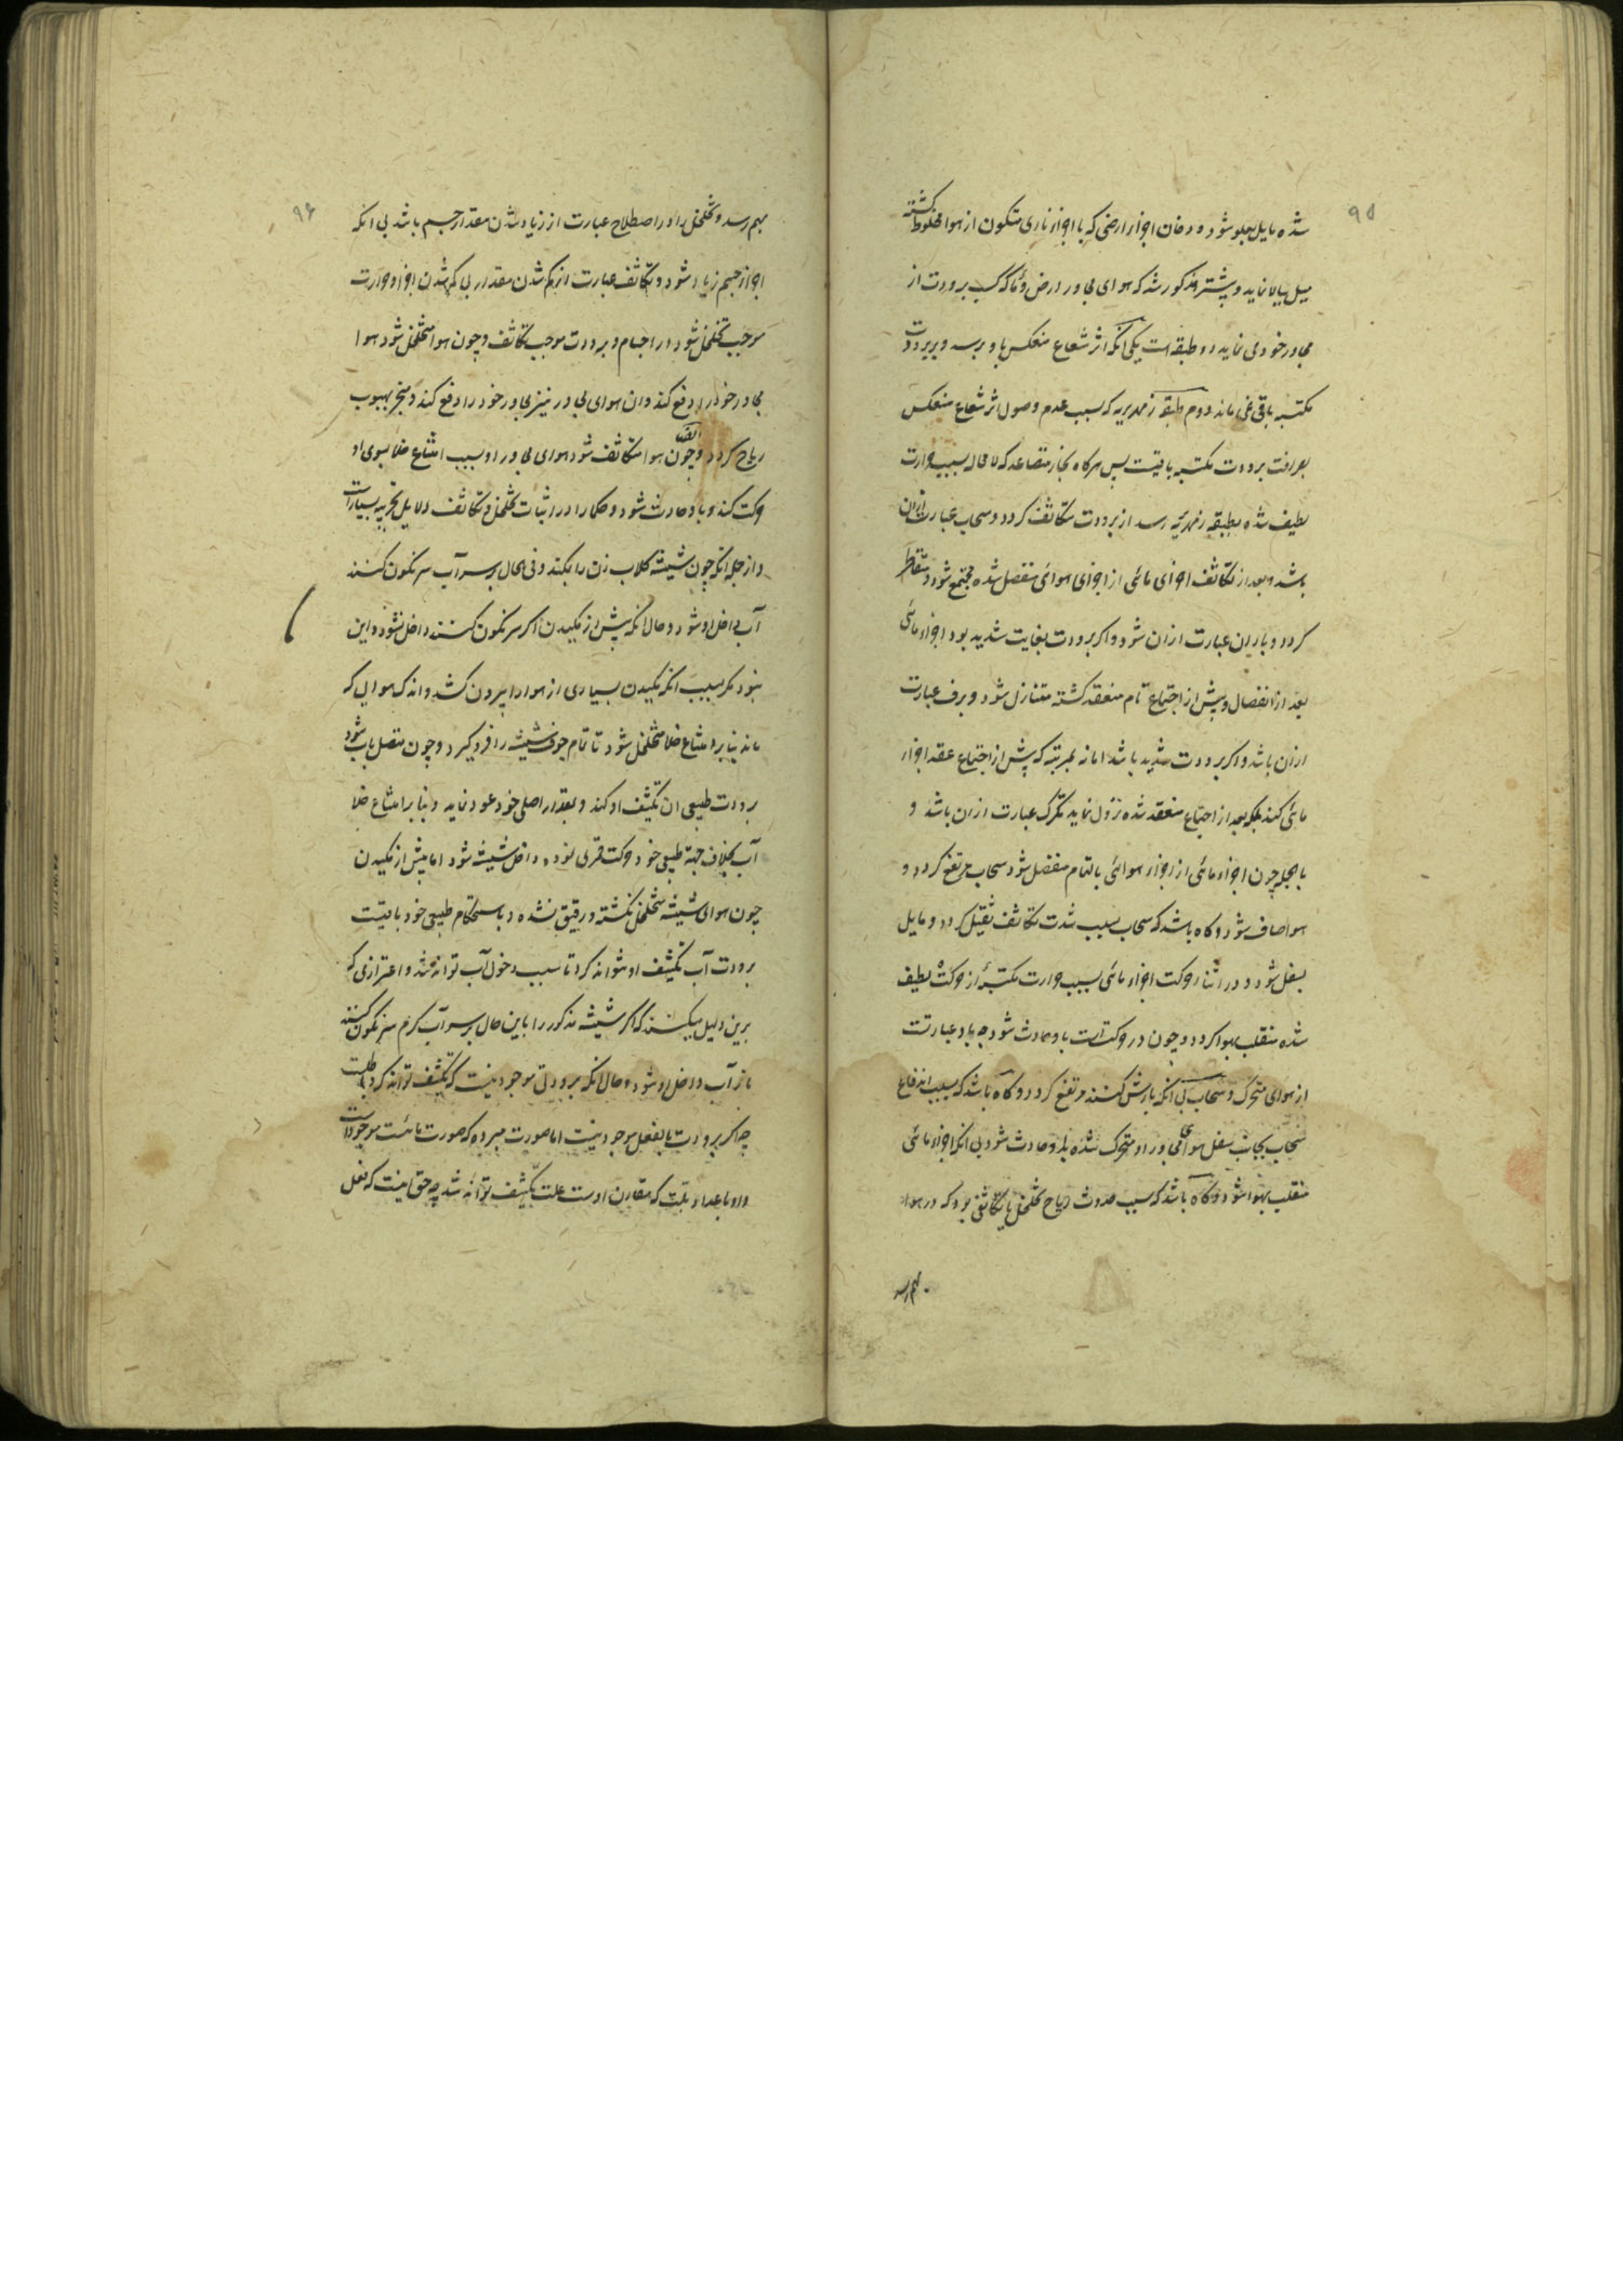 ۹۵
شده مایل بعلو شود و دخان اجزاء ارضی که با اجزاء ناری متکون از هوا مخلوط کشته
میل ببالا نماید و پیشتر مذکور شد که هوای مجاور ارض و ماء که کسب برودت از
مجاور خود می نماید دو طبقه است یکی انکه اثر شعاع منعکس باو برسد و بر برودت
مکتسبه باقی نمی ماند دوم طبقه زمهریریه که بسبب عدم وصول اثر شعاع منعکس
بصرافت برودت مکتسبه باقیست پس هرکاه بخار متصاعد که لا محاله بسبب حرارت
لطیف شده بطبقه زمهریریه رسد از برودت متکاثف کردد و سحاب عبارت ازان
باشد و بعد از تکاثف اجزای مائی از اجزای هوائی منفصل شده مجتمع شود و متقاطر
کردد و باران عبارت ازان شود و اکر برودت بغایت شدید بود اجزاء مائی
بعد از انفصال و پیش از اجتماع تام منعقد کشته متنازل شود و برف عبارت
ازان باشد و اکر برودت شدید باشد اما نه بمرتبه که پیش از اجتماع عقد اجزاء
مائی کند بلکه بعد از اجتماع منعقد شده نزول نماید تکرک عبارت ازان باشد و
بالجمله چون اجزاء مائی از اجزاء هوائی بالتمام منفصل شود سحاب مرتفع کردد و
هوا صاف شود و کاه باشد که سحاب بسبب شدت تکاثف ثقیل کردد و مایل
بسفل شود و در اثناء حرکت اجزاء مائی بسبب حرارت مکتسبه از حرکت لطیف
شده منقلب بهوا کردد و چون در حرکت است باد حادث شود چه باد عبارتست
از هوای متحرک و سحاب بی انکه بارش کند مرتفع کردد و کاه باشد که بسبب اندفاع
سحاب بجانب سفل هوای مجاور او متحرک شده باد حادث شود بی انکه اجزاء مائی
منقلب بهوا شود و کاه باشد که سبب حدوث ریاح تخلخل یا تکاثفی بود که در هوا
بهم رسد
۹۶
بهم رسد و تخلخل را در اصطلاح عبارت از زیاد شدن مقدار جسم باشد بی انکه
اجزاء جسم زیاد شود و تکاثف عبارت از کم شدن مقدار بی کم شدن اجزا و حرارت
موجب تخلخل شود در اجسام و برودت موجب تکاثف و چون هوا متخلخل شود هوا
مجاور خود را دفع کند و ان هوای مجاور نیز مجاور خود را دفع کند و منجر بهبوب
ریاح کردد و ایضا چون هوا متکاثف شود هوای مجاور او بسبب امتناع خلا بسوی او
حرکت کند و باد حادث شود و حکما را در اثبات تخلخل و تکاثف دلایل تجربیه بسیارست
و از جمله انکه چون شیشه کلاب زن را بمکند و فی الحال بر سر آب سرنکون کنند
آب داخل او شود و حال انکه پیش از مکیدن اکر سرنکون کنند داخل نشود و این
نبود مکر بسبب انکه مکیدن بسیاری از هوا را بیرون کشد و اندک هوایی که
ماند بنا بر امتناع خلا متخلخل شود تا تمام جوف شیشه را فرو کیرد و چون متصل بآب شود
برودت طبیعی ان تکثیف او کند و بمقدار اصلی خود عود نماید و بنا بر امتناع خلا
آب بخلاف جهة طبیعی خود حرکت قسری نموده داخل شیشه شود اما پیش از مکیدن
چون هوای شیشه متخلخل نکشته و رقیق نشده و باستحکام طبیعی خود باقیست
برودت آب تکثیف او نتواند کرد تا سبب دخول آب تواند شد و اعتراضی که
برین دلیل میکنند که اکر شیشه مذکور را باین حال بر سر آب کرم سرنکون کنند
باز آب داخل او شود و حال انکه برودتی موجود نیست که تکثیف تواند کرد
چه اکر برودت بالفعل موجود نیست اما صورت مبرده که صورت مائیست موجود است
که مقارن اوست علت تکثیف تواند شد چه حق اینست که فعل